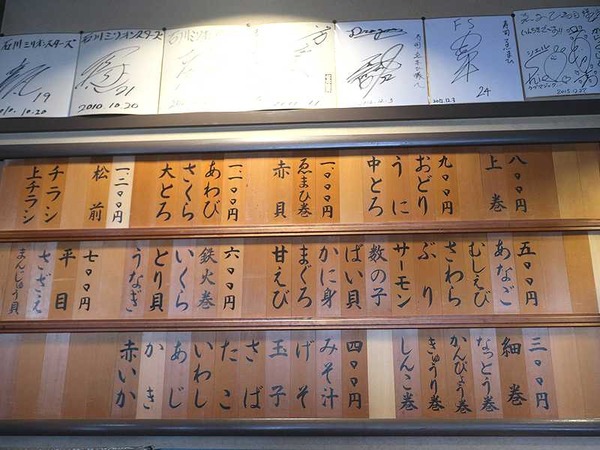 石川ミリオンスターズ
19
2010.10.20
石川ミリオンスターズ
21
2010.10.20
石川ミリ
Dragons
FS
24
2012.12.3
2013.12.27
八〇〇円
上巻
九〇〇円
おどり
うに
中とろ
一、〇〇〇円
ゑまひ巻
赤貝
一、一〇〇円
あわび
さくら
大とろ
一、二〇〇円
松前
チラシ
上チラシ
五〇〇円
あなご
むしえび
さわら
ぶり
サーモン
数の子
ばい貝
かに身
まぐろ
甘えび
六〇〇円
鉄火巻
いくら
とり貝
うなぎ
七〇〇円
平目
さざえ
まんじゅう貝
三〇〇円
細巻
なっとう巻
かんぴょう巻
きゅうり巻
しんこ巻
四〇〇円
みそ汁
げそ
玉子
さば
たこ
いわし
あじ
かき
赤いか